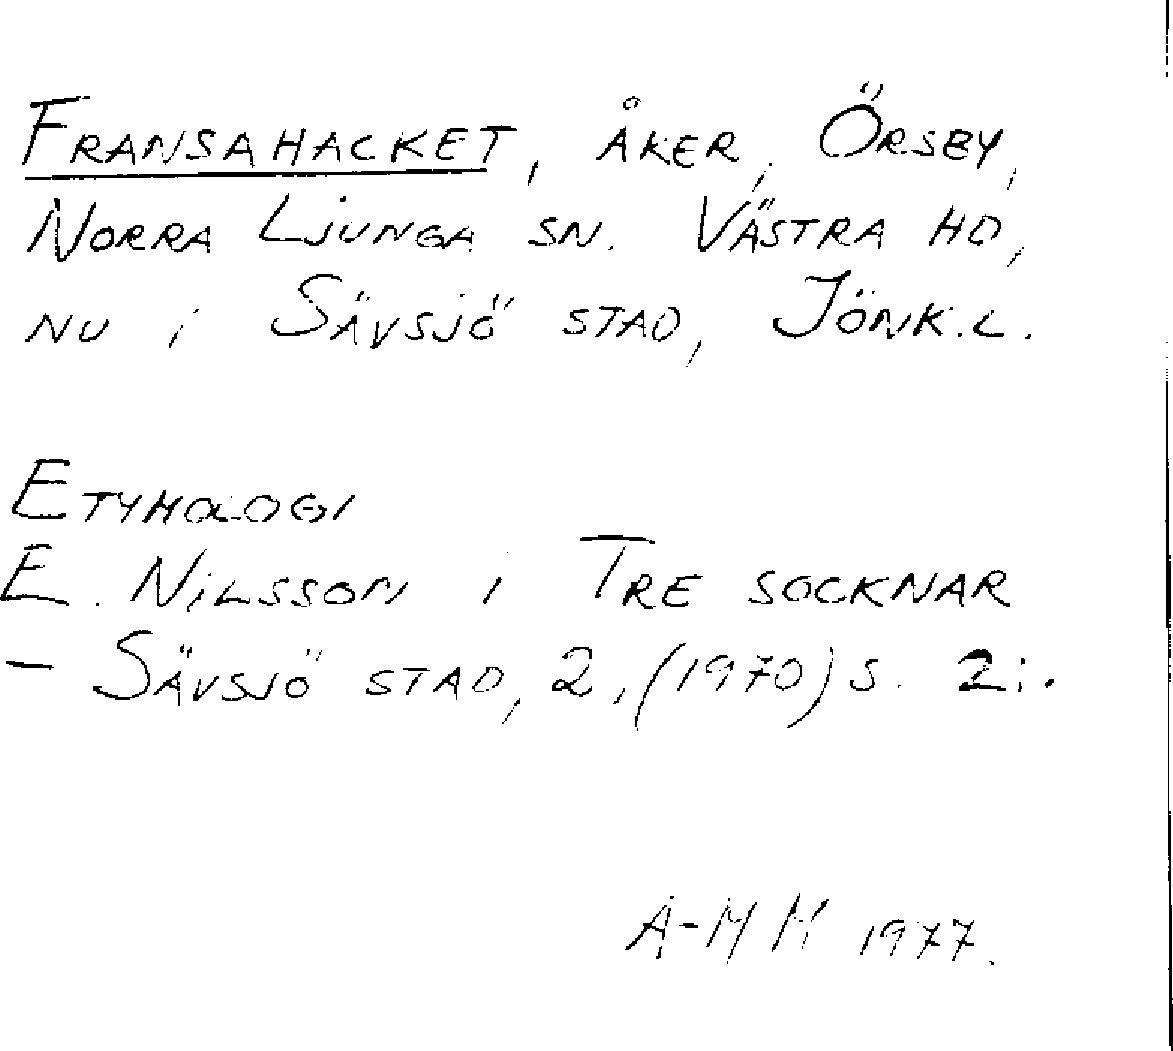 FRANSAHACKET, ÅKER, ÖRSBY,
NORRA LJUNGA SN. VÄSTRA HD,
NU i SÄVSJÖ STAD, JÖNK.L.
ETYMOLOGI
E. NILSSON i TRE SOCKNAR
– SÄVSJÖ STAD, 2, (1970) S.
A-MM 1977.